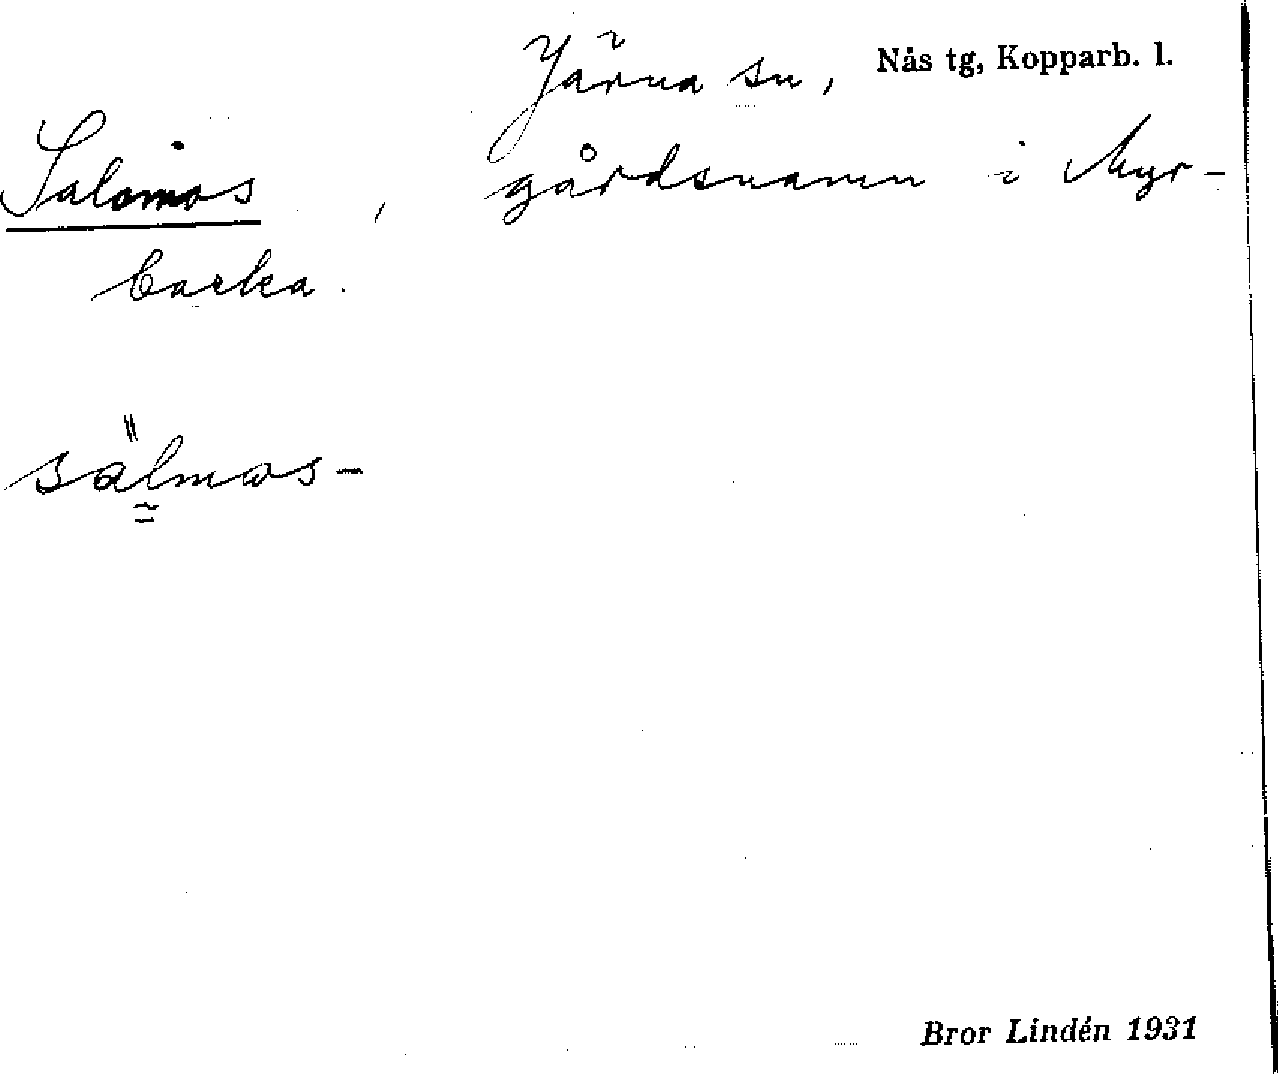 Järna sn, Nås tg, Kopparb. l.
Salomos, gårdsnamn i Myr-
backa.
sälmos-
Bror Lindén 1931